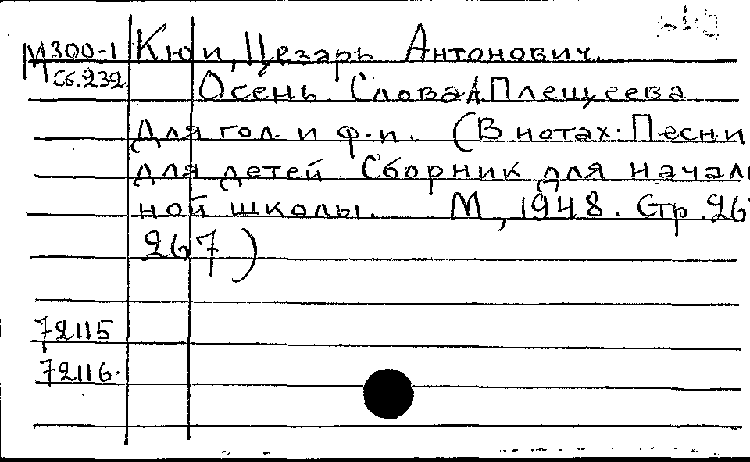 М300-1 Кюи, Цезарь Антонович.
Сб.232 Осень. Слова А.Плещеева
Для гол. и ф-п. (В нотах: Песни
для детей Сборник для началь
ной школы. М., 1948. Стр. 26
267)
72115
72116.